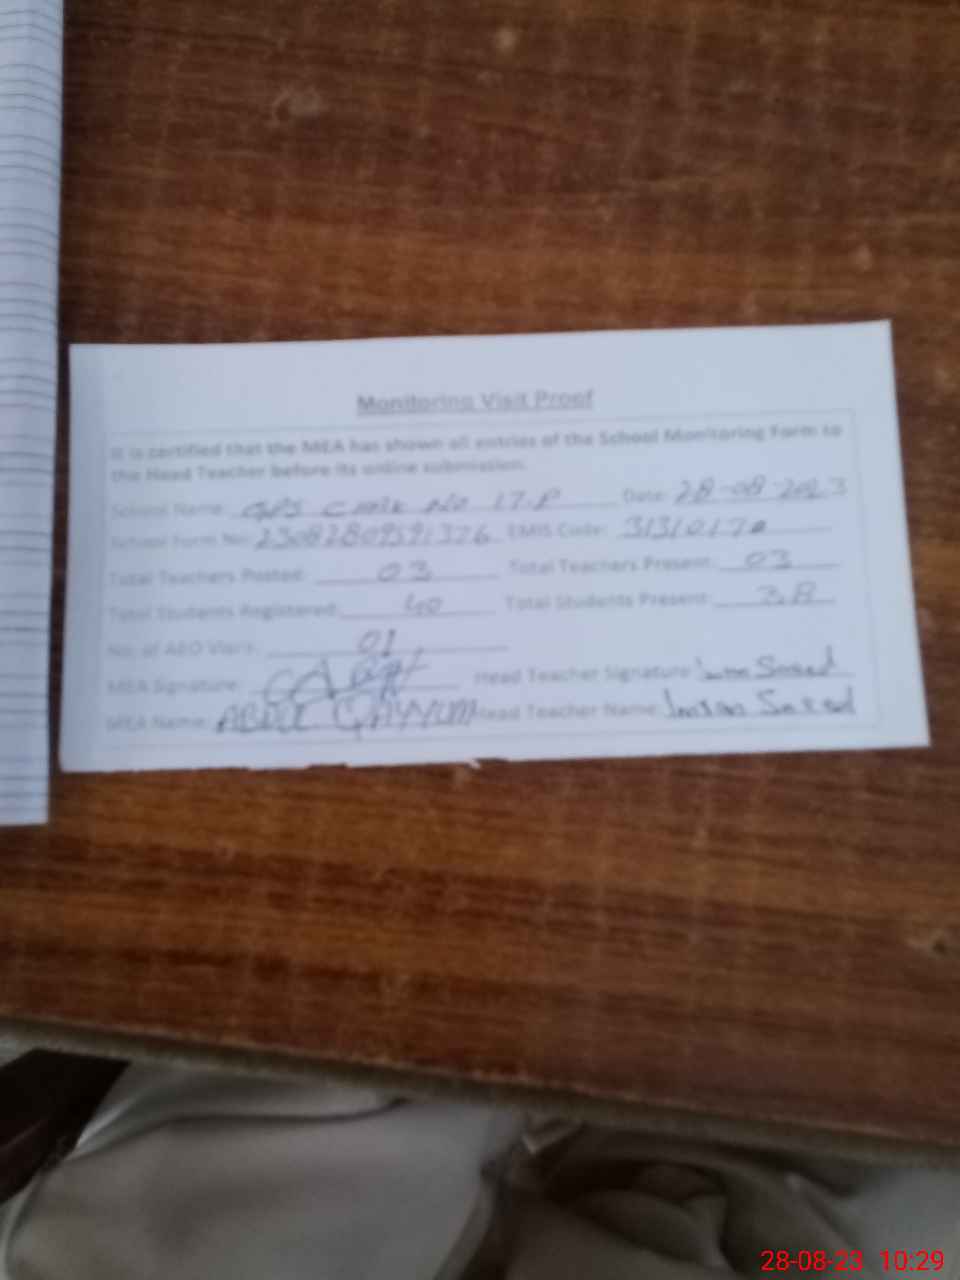 Monitoring Visit Proof
It is certified that the MEA has shown all entries of the School Monitoring Form to
the Head Teacher before its online submission.
School Name: GPS Chak No 17.P Date: 28-08-2023
School Form No: EMIS Code:
Total Teachers Posted: 03 Total Teachers Present: 03
Total Students Registered: 40 Total Students Present: 38
No. of AEO Visits: 01
MEA Signature: Head Teacher Signature: Saeed
MEA Name: ABDUL QAYYUM Head Teacher Name: Imran Saeed
28-08-23 10:29